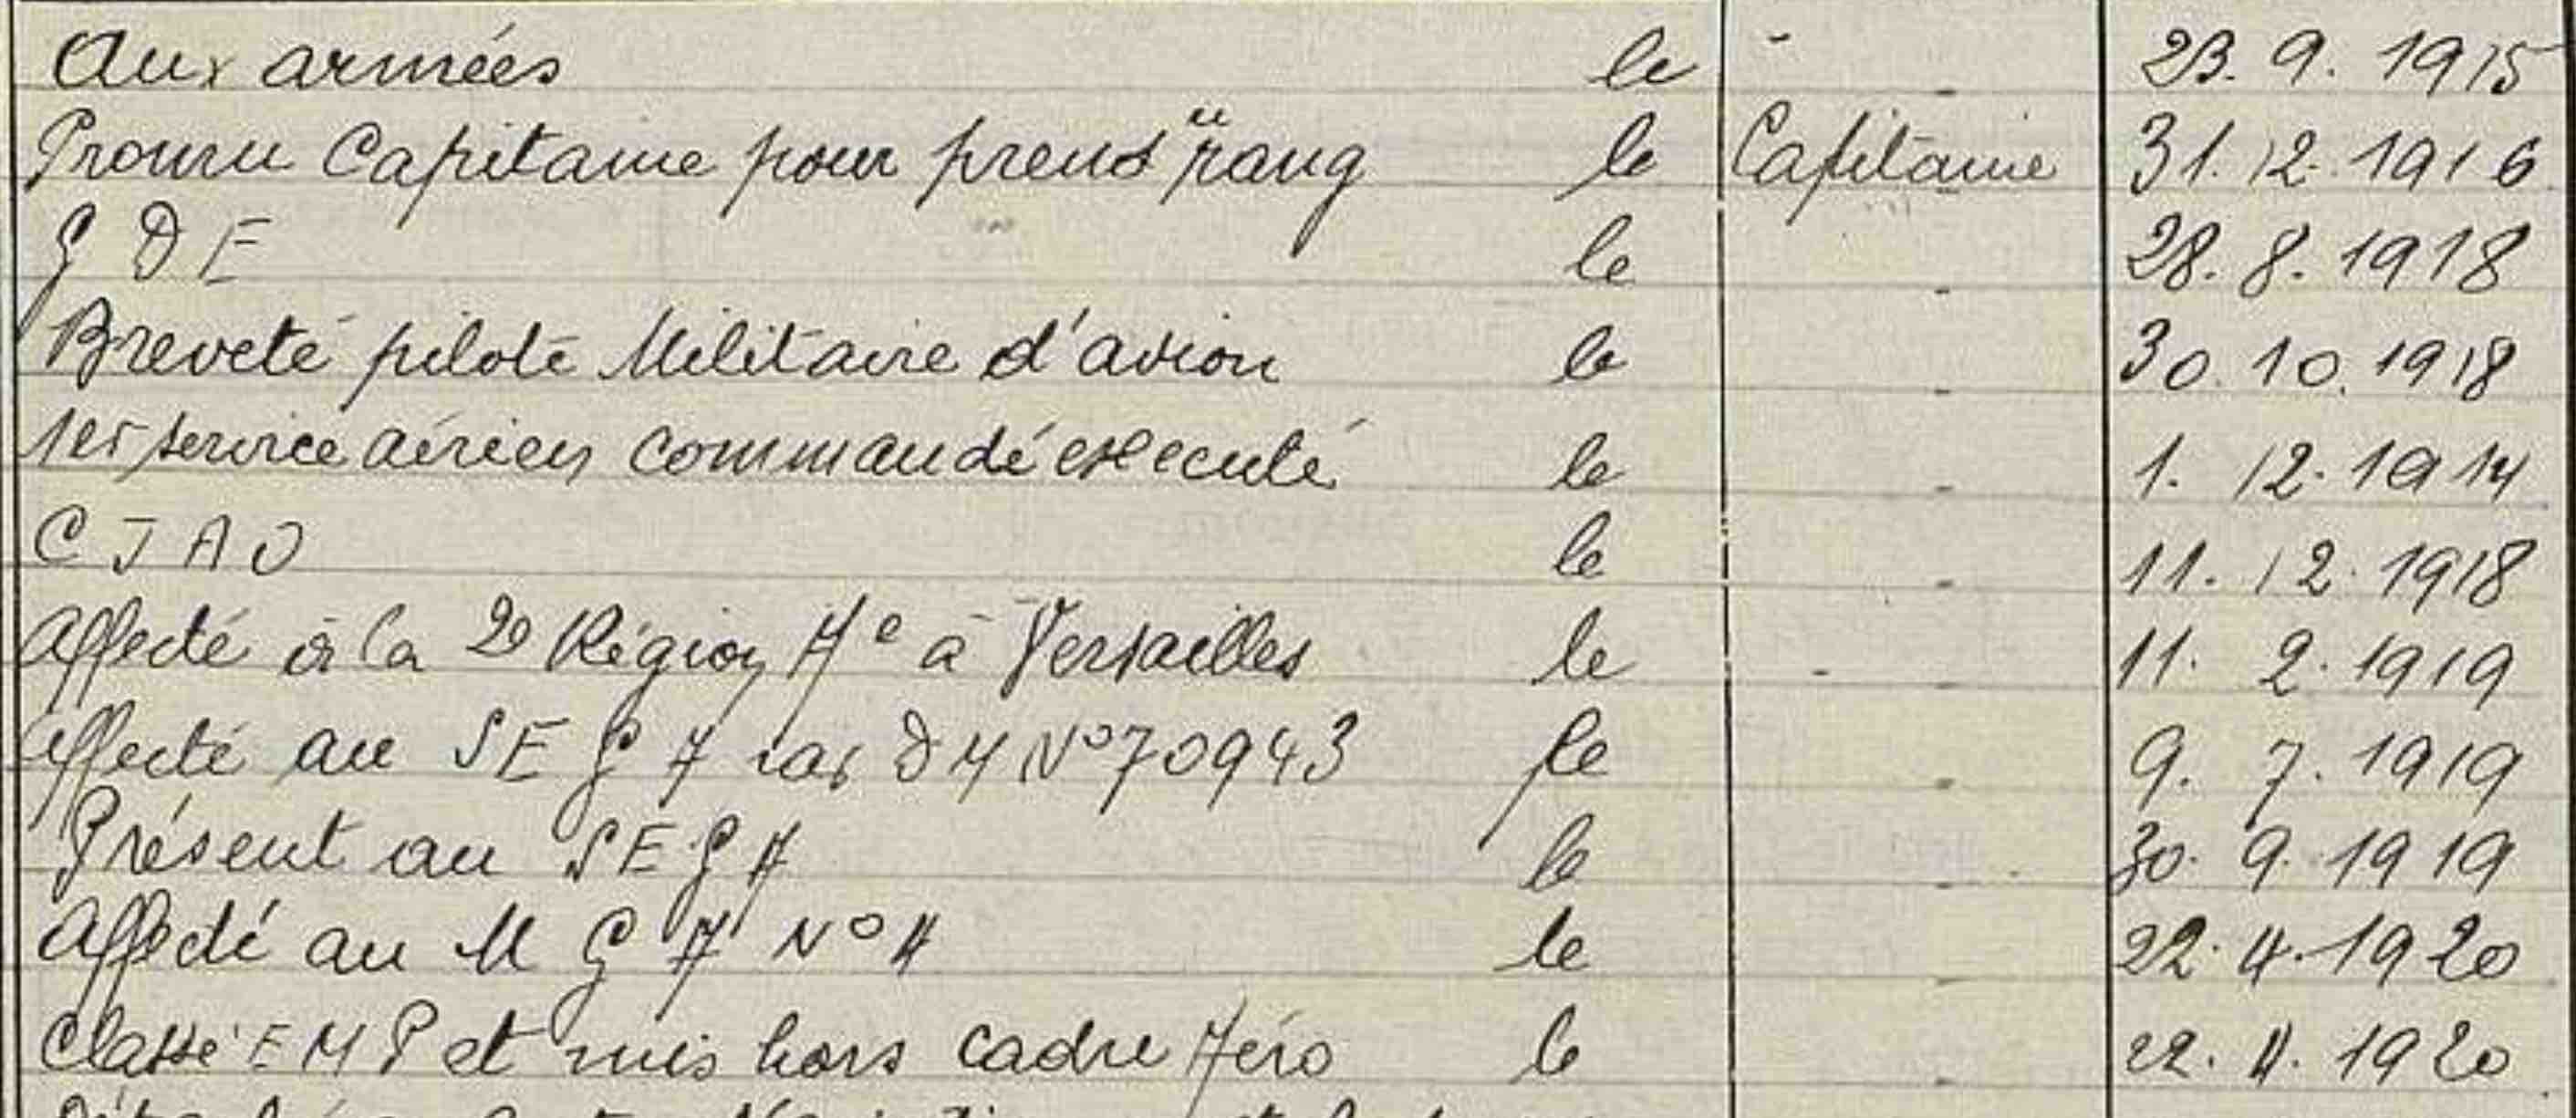 Aux armées le - - 23. 9. 1915
Promu Capitaine pour prend re rang le Capitaine 31. 12. 1916
G D E le - 28. 8. 1918
Breveté pilote Militaire d'avion le - 30. 10. 1918
1er service aérien commandé exécuté le - 1. 12. 1914
C I A O le - 11. 12. 1918
Affecté à la 2e Région Ae à Versailles le - - 11. 2. 1919
Affecté au S E G A par D M N° 70943 le - 9. 7. 1919
Présent au S E G A le - 30. 9. 1919
Affecté au M G A N° 4 le - 22. 4. 1920
Classé E M P et mis hors cadre Aéro le - 22. 4. 1920